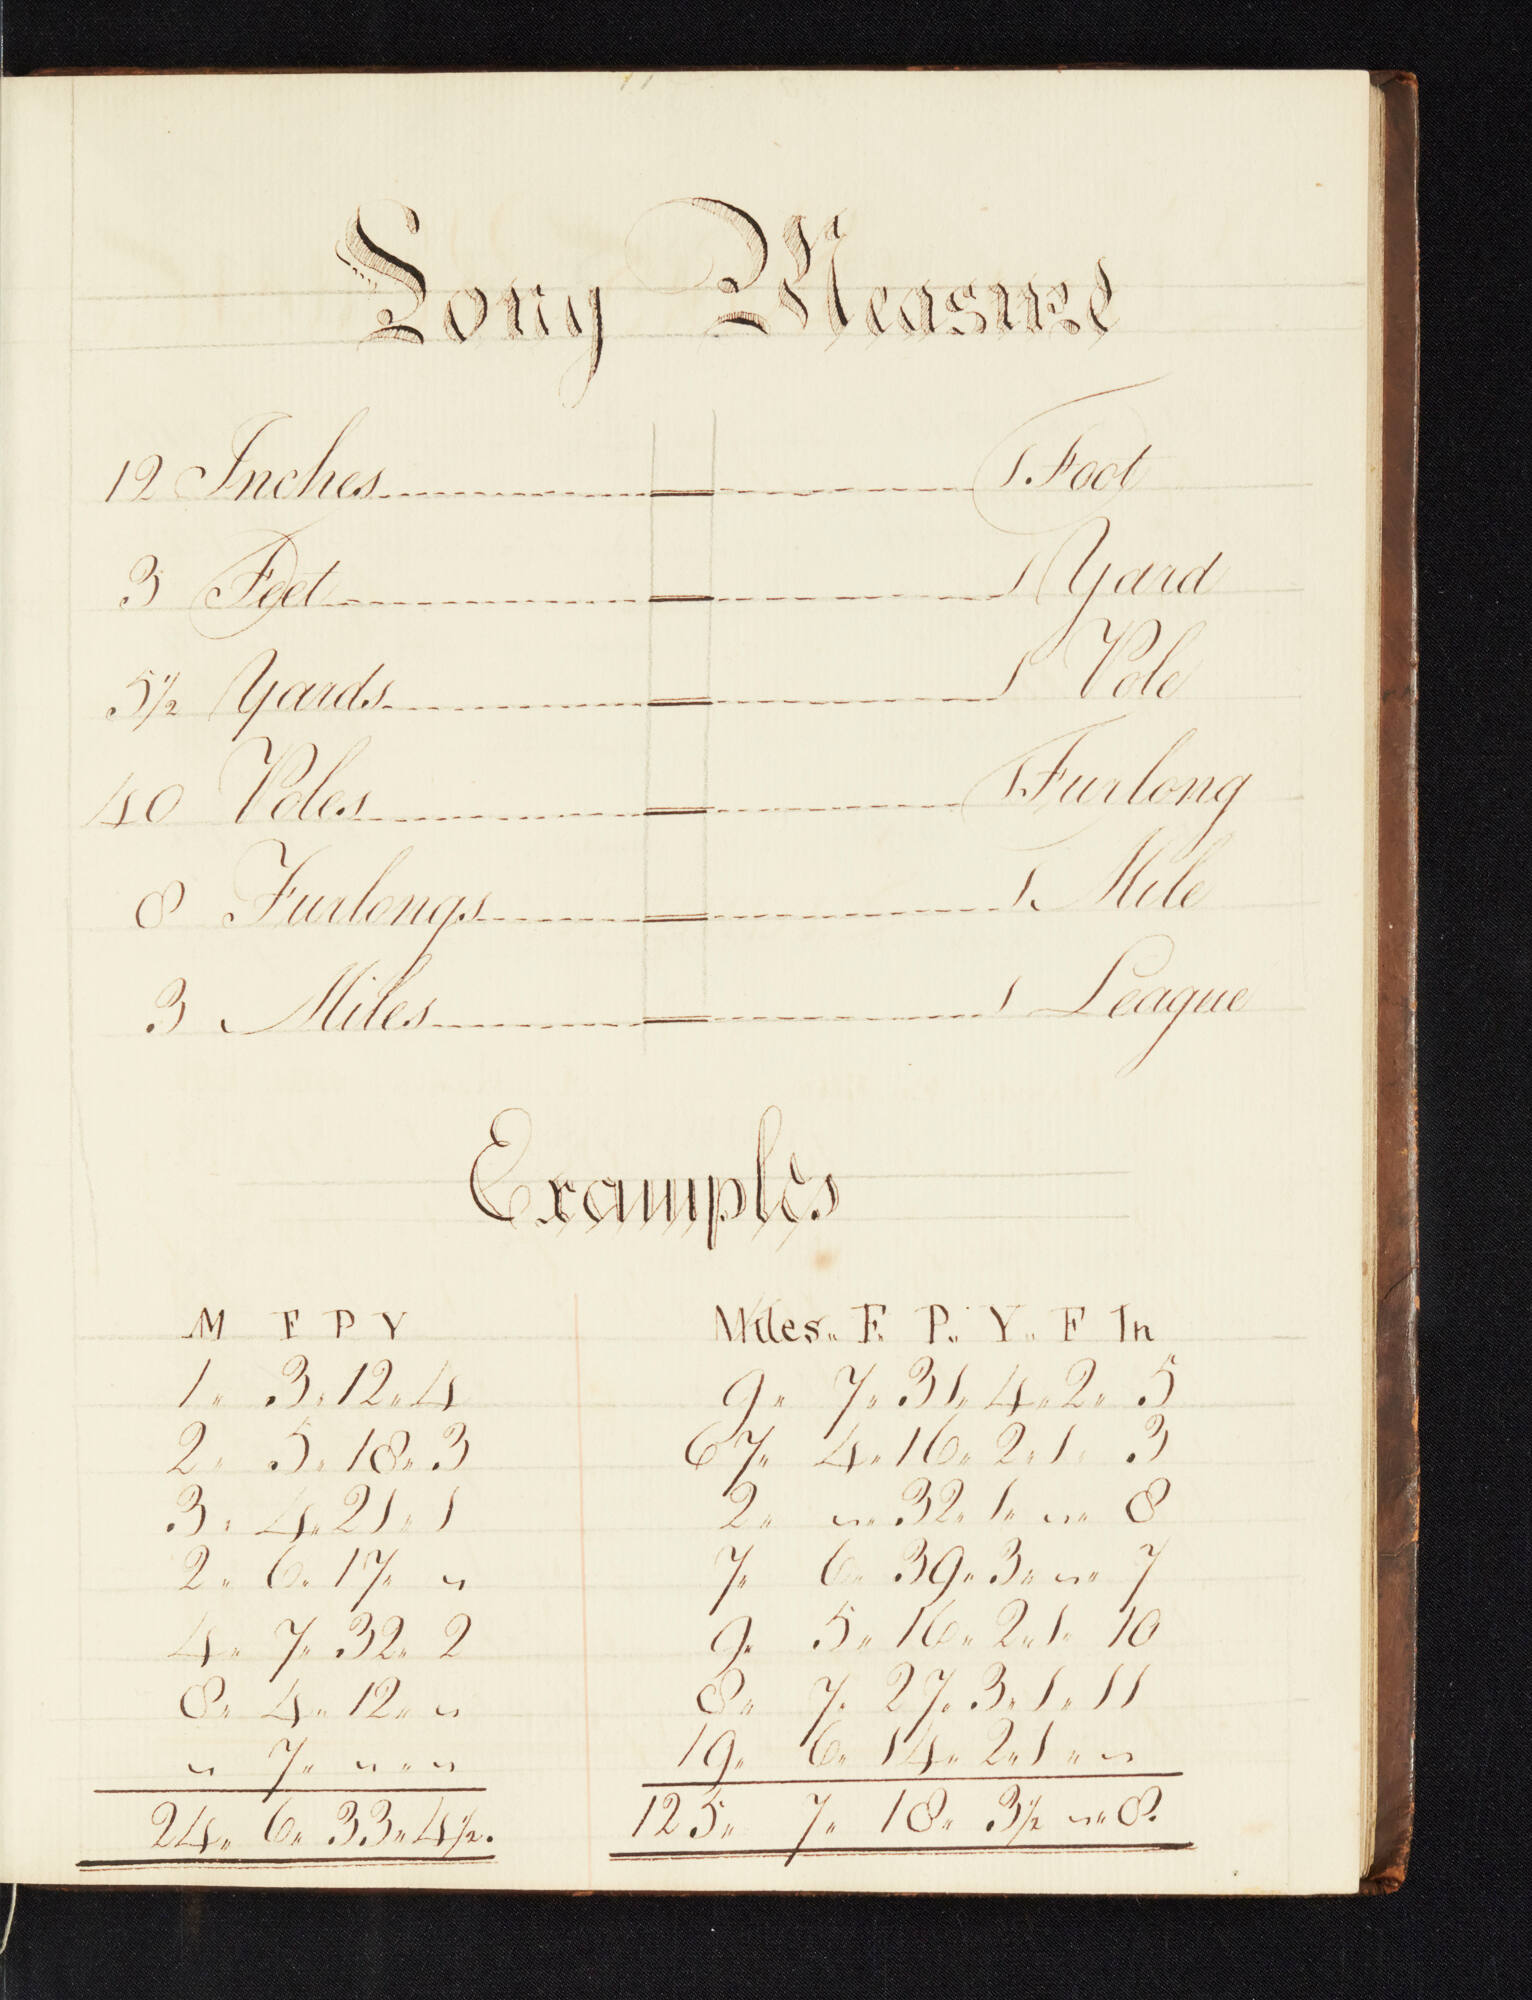 Long Measure
12 Inches = 1 Foot
3 Feet = 1 Yard
5 1/2 Yards = 1 Pole
40 Poles = 1 Furlong
8 Furlongs = 1 Mile
3 Miles = 1 League
Examples
M F P Y
1 " 3 " 12 " 4
2 " 5 " 18 " 3
3 " 4 " 21 " 1
2 " 6 " 17 " "
4 " 7 " 32 " 2
8 " 4 " 12 " "
" 7 " " " "
24 " 6 " 33 " 4 1/2 .
Miles " F. P " Y " F In
9 " 7 " 31 " 4 " 2 " 5
67 " 4 " 16 " 2 " 1 " 3
2 " " " 32 " 1 " " " 8
7 " 6 " 39 " 3 " " " 7
9 " 5 " 16 " 2 " 1 " 10
8 " 7 " 27 " 3 " 1 " 11
19 " 6 " 14 " 2 " 1 " "
125 " 7 " 18 " 3 1/2 " " 8 .